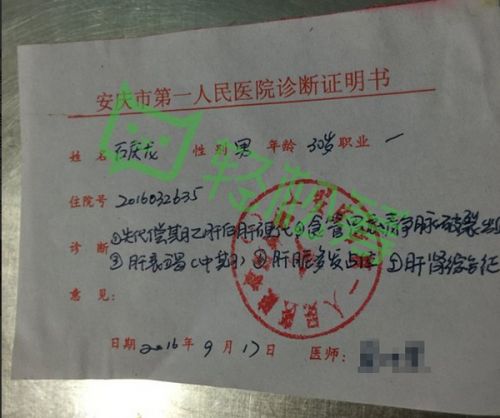 安庆市第一人民医院诊断证明书
姓 名 石庆龙 性 别 男 年 龄 30岁 职 业 一
住院号 2016032635
诊 断 ①失代偿期乙肝后肝硬化 ②食管胃底静脉破裂出
③肝衰竭(中期) ④肝脏多发占位 ⑤肝肾综合征
意 见:
日期 2016 年 9 月 17 日 医师:
轻松筹